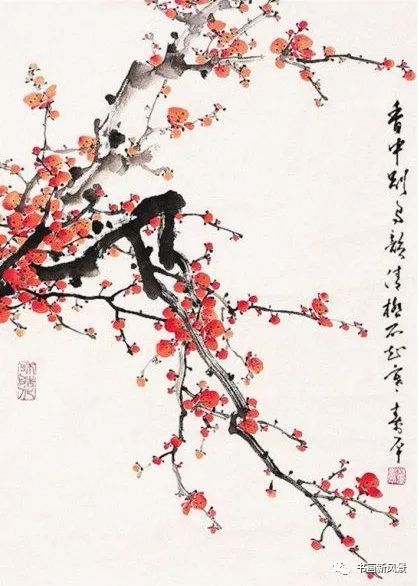 香中别有韵清極不知寒 寿平
书画新风景